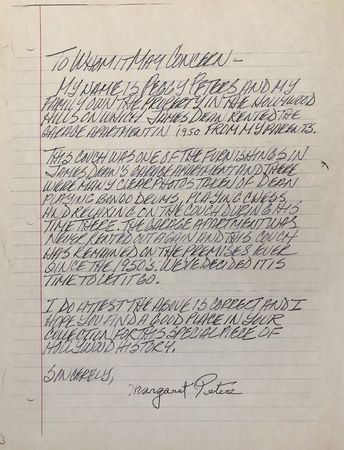 TO WHOM IT MAY CONCERN -
MY NAME IS PEGGY PETERS AND MY
FAMILY OWN THE PROPERTY IN THE HOLLYWOOD
HILLS ON WHICH JAMES DEAN RENTED THE
GARAGE APARTMENT IN 1950 FROM MY PARENTS.
THIS COUCH WAS ONE OF THE FURNISHINGS IN
JAMES DEAN'S GARAGE APARTMENT AND THERE
WERE MANY CLEAR PHOTOS TAKEN OF DEAN
PLAYING BONGO DRUMS, PLAYING CHESS
AND RELAXING ON THE COUCH DURING HIS
TIME THERE. THE GARAGE APARTMENT WAS
NEVER RENTED OUT AGAIN AND THIS COUCH
HAS REMAINED ON THE PREMISES EVER
SINCE THE 1950'S. WE'VE DECIDED IT IS
TIME TO LET IT GO.
I DO ATTEST THE ABOVE IS CORRECT AND I
HOPE YOU FIND A GOOD PLACE IN YOUR
COLLECTION FOR THIS SPECIAL PIECE OF
HOLLYWOOD HISTORY.
SINCERELY,
Margaret Peters